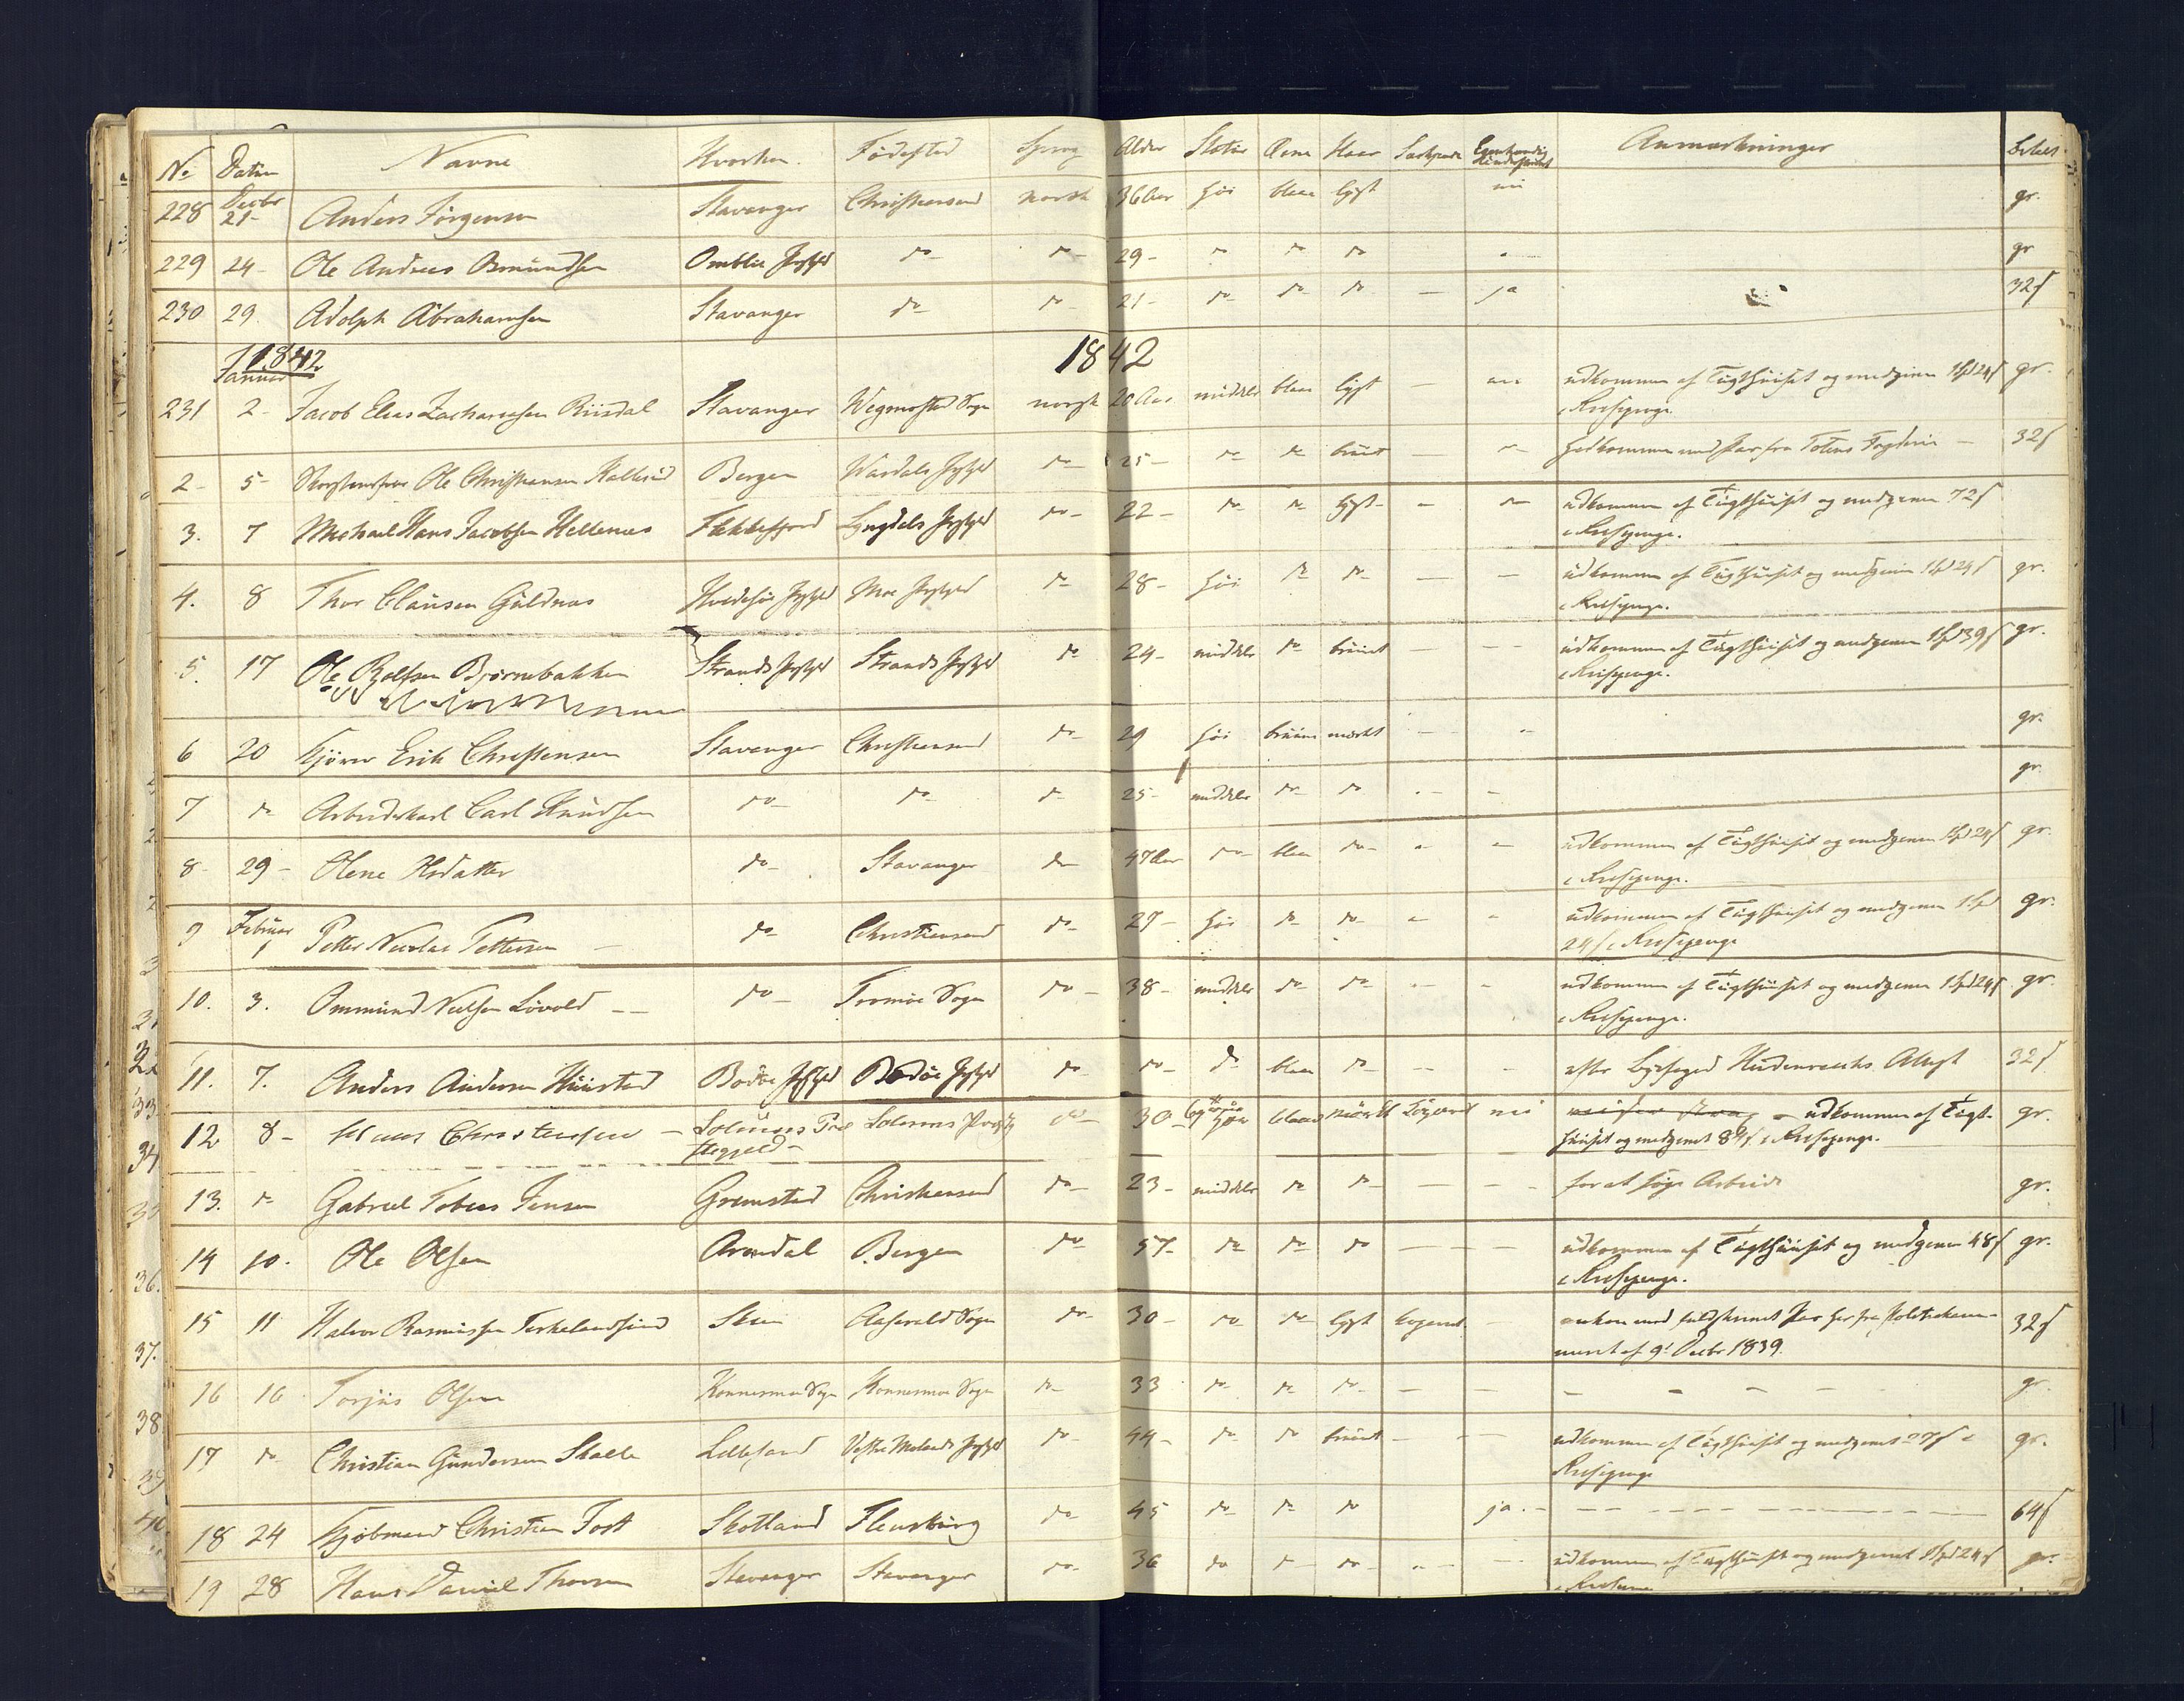 No Datum Navne Hvorhen. Fødested Sprog Alder Statur Øine Haar Særkjende Egenhændig Underskrivt Anmærkninger betalt
228 Decbr 21- Anders Jørgensen Stavanger Christiansand norsk 36 Aar høi blaa lyst nei gr.
229 24- Ole Andreas Osmundsen Omblie Prgjeld do do 29- do do do - gr
230 29. Adolph Abrahamsen Stavanger do do 21- do do do — ja 32ſ
1842 1842
Januar
231 2- Jacob Elias Zachariasen Riisdal Stavanger Wegmosted Sogn norsk 20 Aar middels blaa lyst — udkommen af Tugthuuset og medgiven 1 Spd 24ſ gr.
i Reisepenge.
2- 5- Ole Christiansen Bergen Wardals Prgjeld do 25- do do bruunt — do hidkommen med Pas fra Totens Fogderie — 32ſ
3. 7 Michael Hans Jacobsen Hellenes Flekkefjord Lyngdals Prgjeld do- 22- do do lyst- - do udkommen af Tugthuuset og medgiven 72ſ
i Reisepenge.
4. 8 Thor Clausen Guldnæs Hvidesøe Prgjeld Moe Prgjeld do 28- høi do do — — udkommen af Tugthuuset og medgiven 1 Spd 24ſ gr.
i Reisepenge.
5. 17 Ole Rolfsen Bjørnebakken Strands Prgjeld Strands Prgjeld do 24- middels do bruunt — - - udkommen af Tugthuuset og medgiven 1 Spd 39ſ gr.
i Reisepenge.
6 20 Erik Christensen Stavanger Christiansand do- 29 høi bruune mørkt — - gr.
7 do Arbeidskarl Carl Knudsen do- do- do 25- middels do do - - gr.
8- 29- Olene Olsdatter do- Stavanger do 47 Aar do blaa do- - - udkommen af Tugthuuset og medgiven 1 Spd 24ſ gr.
i Reisepenge.
9 Februar 1 Petter Nicolai Pettersen — do Christiansand do- 27- høi do do- - - udkommen af Tugthuuset og medgiven 1 Spd gr.
24ſ i Reisepenge
10. 3. Ommund Nielsen Løvold — do- Tromøe Sogn do- 38- middels do do - - udkommen af Tugthuuset og medgiven 1 Spd 24ſ gr.
i Reisepenge.
11. 7. Anders Andersen Bodøe Prgjeld Bodøe Prgjeld do- do- do blaa do - - efter Byefoged Attest 32ſ
12 8- Christensen — Præ- do- 30- blaae mørkt nei udkommen af Tugt- gr.
stegjeld- huuset og medgivet 84ſ i Reisepenge.
13. do Gabriel Tobias Jensen Grimstad Christiansand do- 23- middels do do — — - for at søge Arbeide gr.
14 10. Ole Olsen Arendal Bergen do 57- do do do — — — udkommen af Tugthuuset og medgiven 48ſ gr.
i Reisepenge.
15 11 Halvor Rasmussen Skien Aaserald Sogn do- 30- do do lyst - Pas her fra Politiekam- 32ſ
meret af 9' Decbr 1839.
16 16 Torjus Olsen Konnesmoe Sogn Konnesmoe Sogn do- 33 do- do do- — — - - - - gr.
17 do Christian Gundersen Skalle Lillesand Vestre Molands Prgjeld do- 44- do do bruunt - - - udkommen af Tugthuuset og medgivet i gr.
Reisepenge
18 24 Kjøbmand Christian Jost Skotland Flensburg do 45 do do do ja - - 64ſ
19 28 Hans Daniel Thorsen Stavanger Stavanger do- 36 do do do - - - udkommen af Tugthuuset og medgivet 1 Spd 24ſ gr.